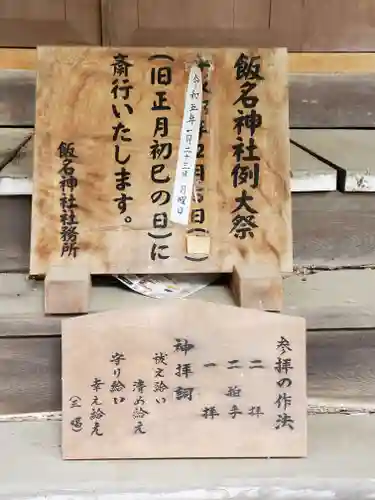 飯名神社例大祭
令和五年一月二十三日月曜日
(旧正月初巳の日)に
斎行いたします。
飯名神社社務所
参拝の作法
二拝
二拍手
一拝
神拝詞
祓え給い
清め給え
守り給い
幸え給え
(三唱)